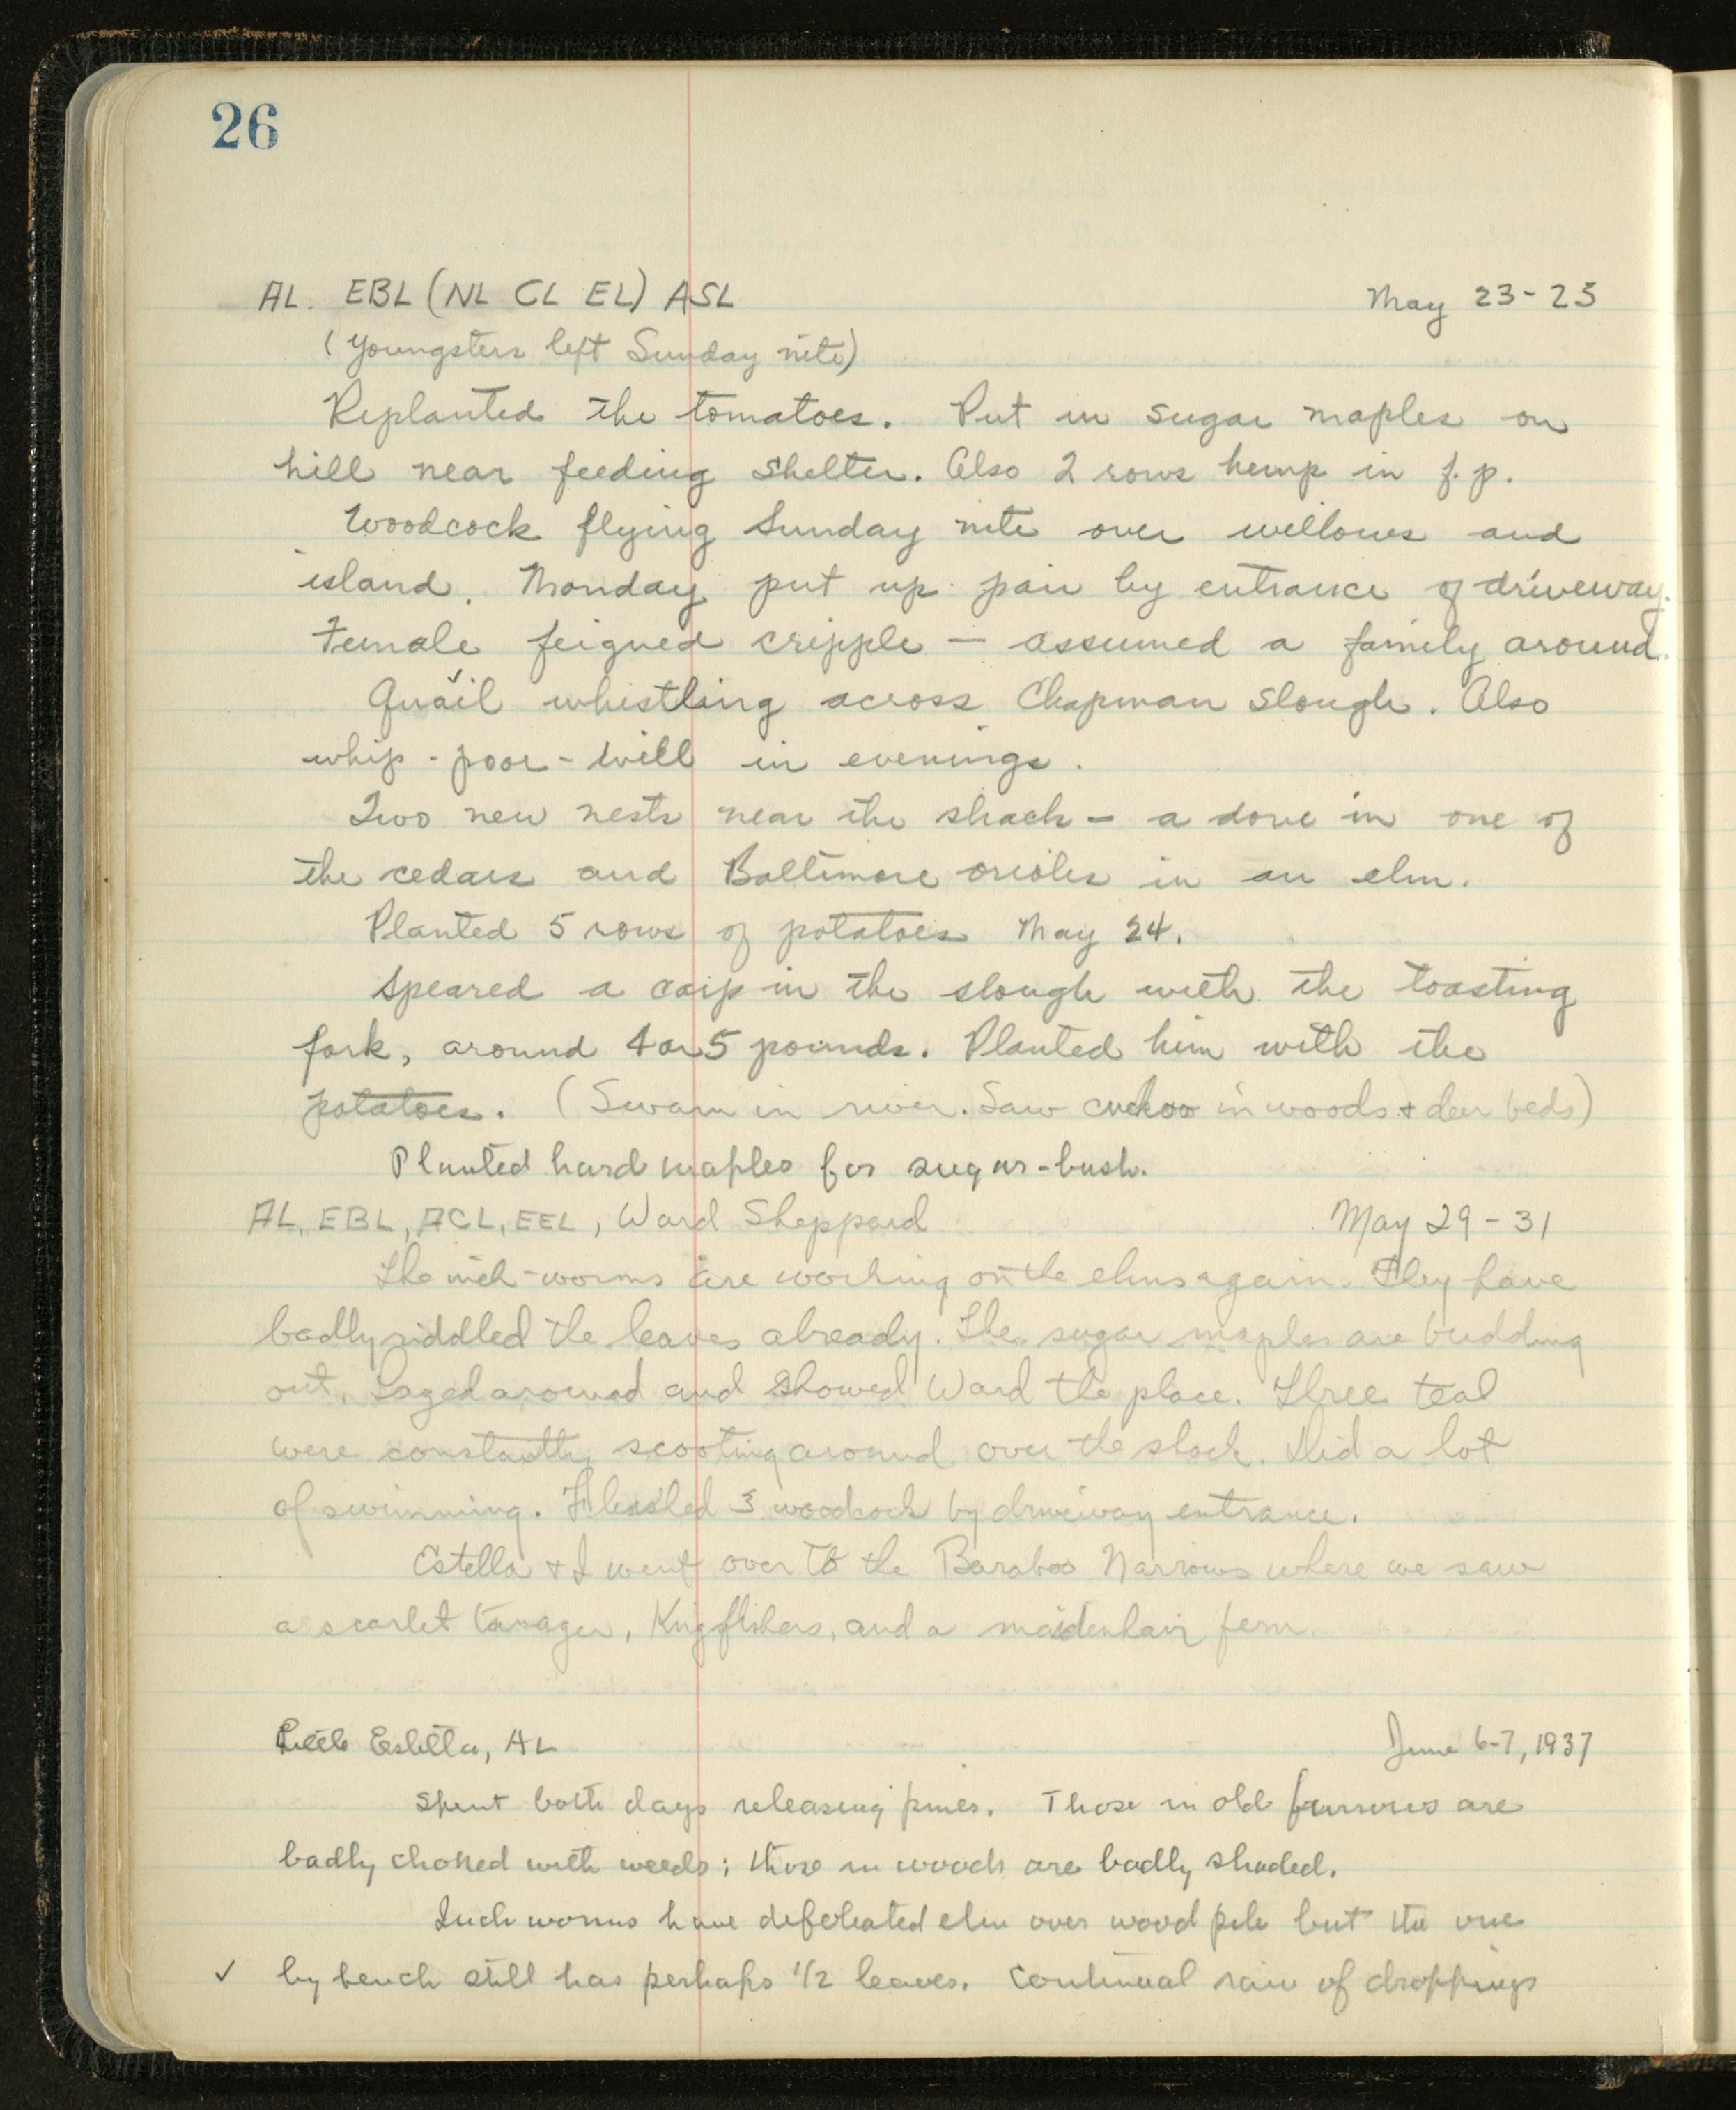 26
AL. EBL (NL CL EL) ASL May 23-25
(Youngsters left Sunday nite)
Replanted the tomatoes. Put in sugar maples on
hill near feeding shelter. Also 2 rows hemp in f.p.
Woodcock flying Sunday nite over willows and
island. Monday put up pair by entrance of driveway.
Female feigned cripple — assumed a family around.
Quail whistling across Chapman slough. Also
whip-poor-will in evenings.
Two new nests near the shack — a dove in one of
the cedars and Baltimore orioles in an elm.
Planted 5 rows of potatoes May 24.
Speared a carp in the slough with the toasting
fork, around 4 or 5 pounds. Planted him with the
potatoes. (Swam in river. Saw cuckoo in woods + deer beds)
Planted hard maples for sugar-bush.
AL, EBL, ACL, EEL, Ward Sheppard May 29-31
The inch-worms are working on the elms again. They have
badly riddled the leaves already. The sugar maples are budding
out. around and showed Ward the place. Three teal
were constantly scooting around over the shack. Did a lot
of swimming. Flushed 3 woodcock by driveway entrance.
Estella + I went over to the Baraboo Narrows where we saw
a scarlet tanager, Kingfishers, and a maidenhair fern.
Little Estella, AL June 6-7, 1937
Spent both days releasing pines. Those in old furrows are
badly choked with weeds; those in woods are badly shaded.
Inch worms have defoleated elm over wood pile but the one
✓ by bench still has perhaps 1/2 leaves. Continual rain of droppings